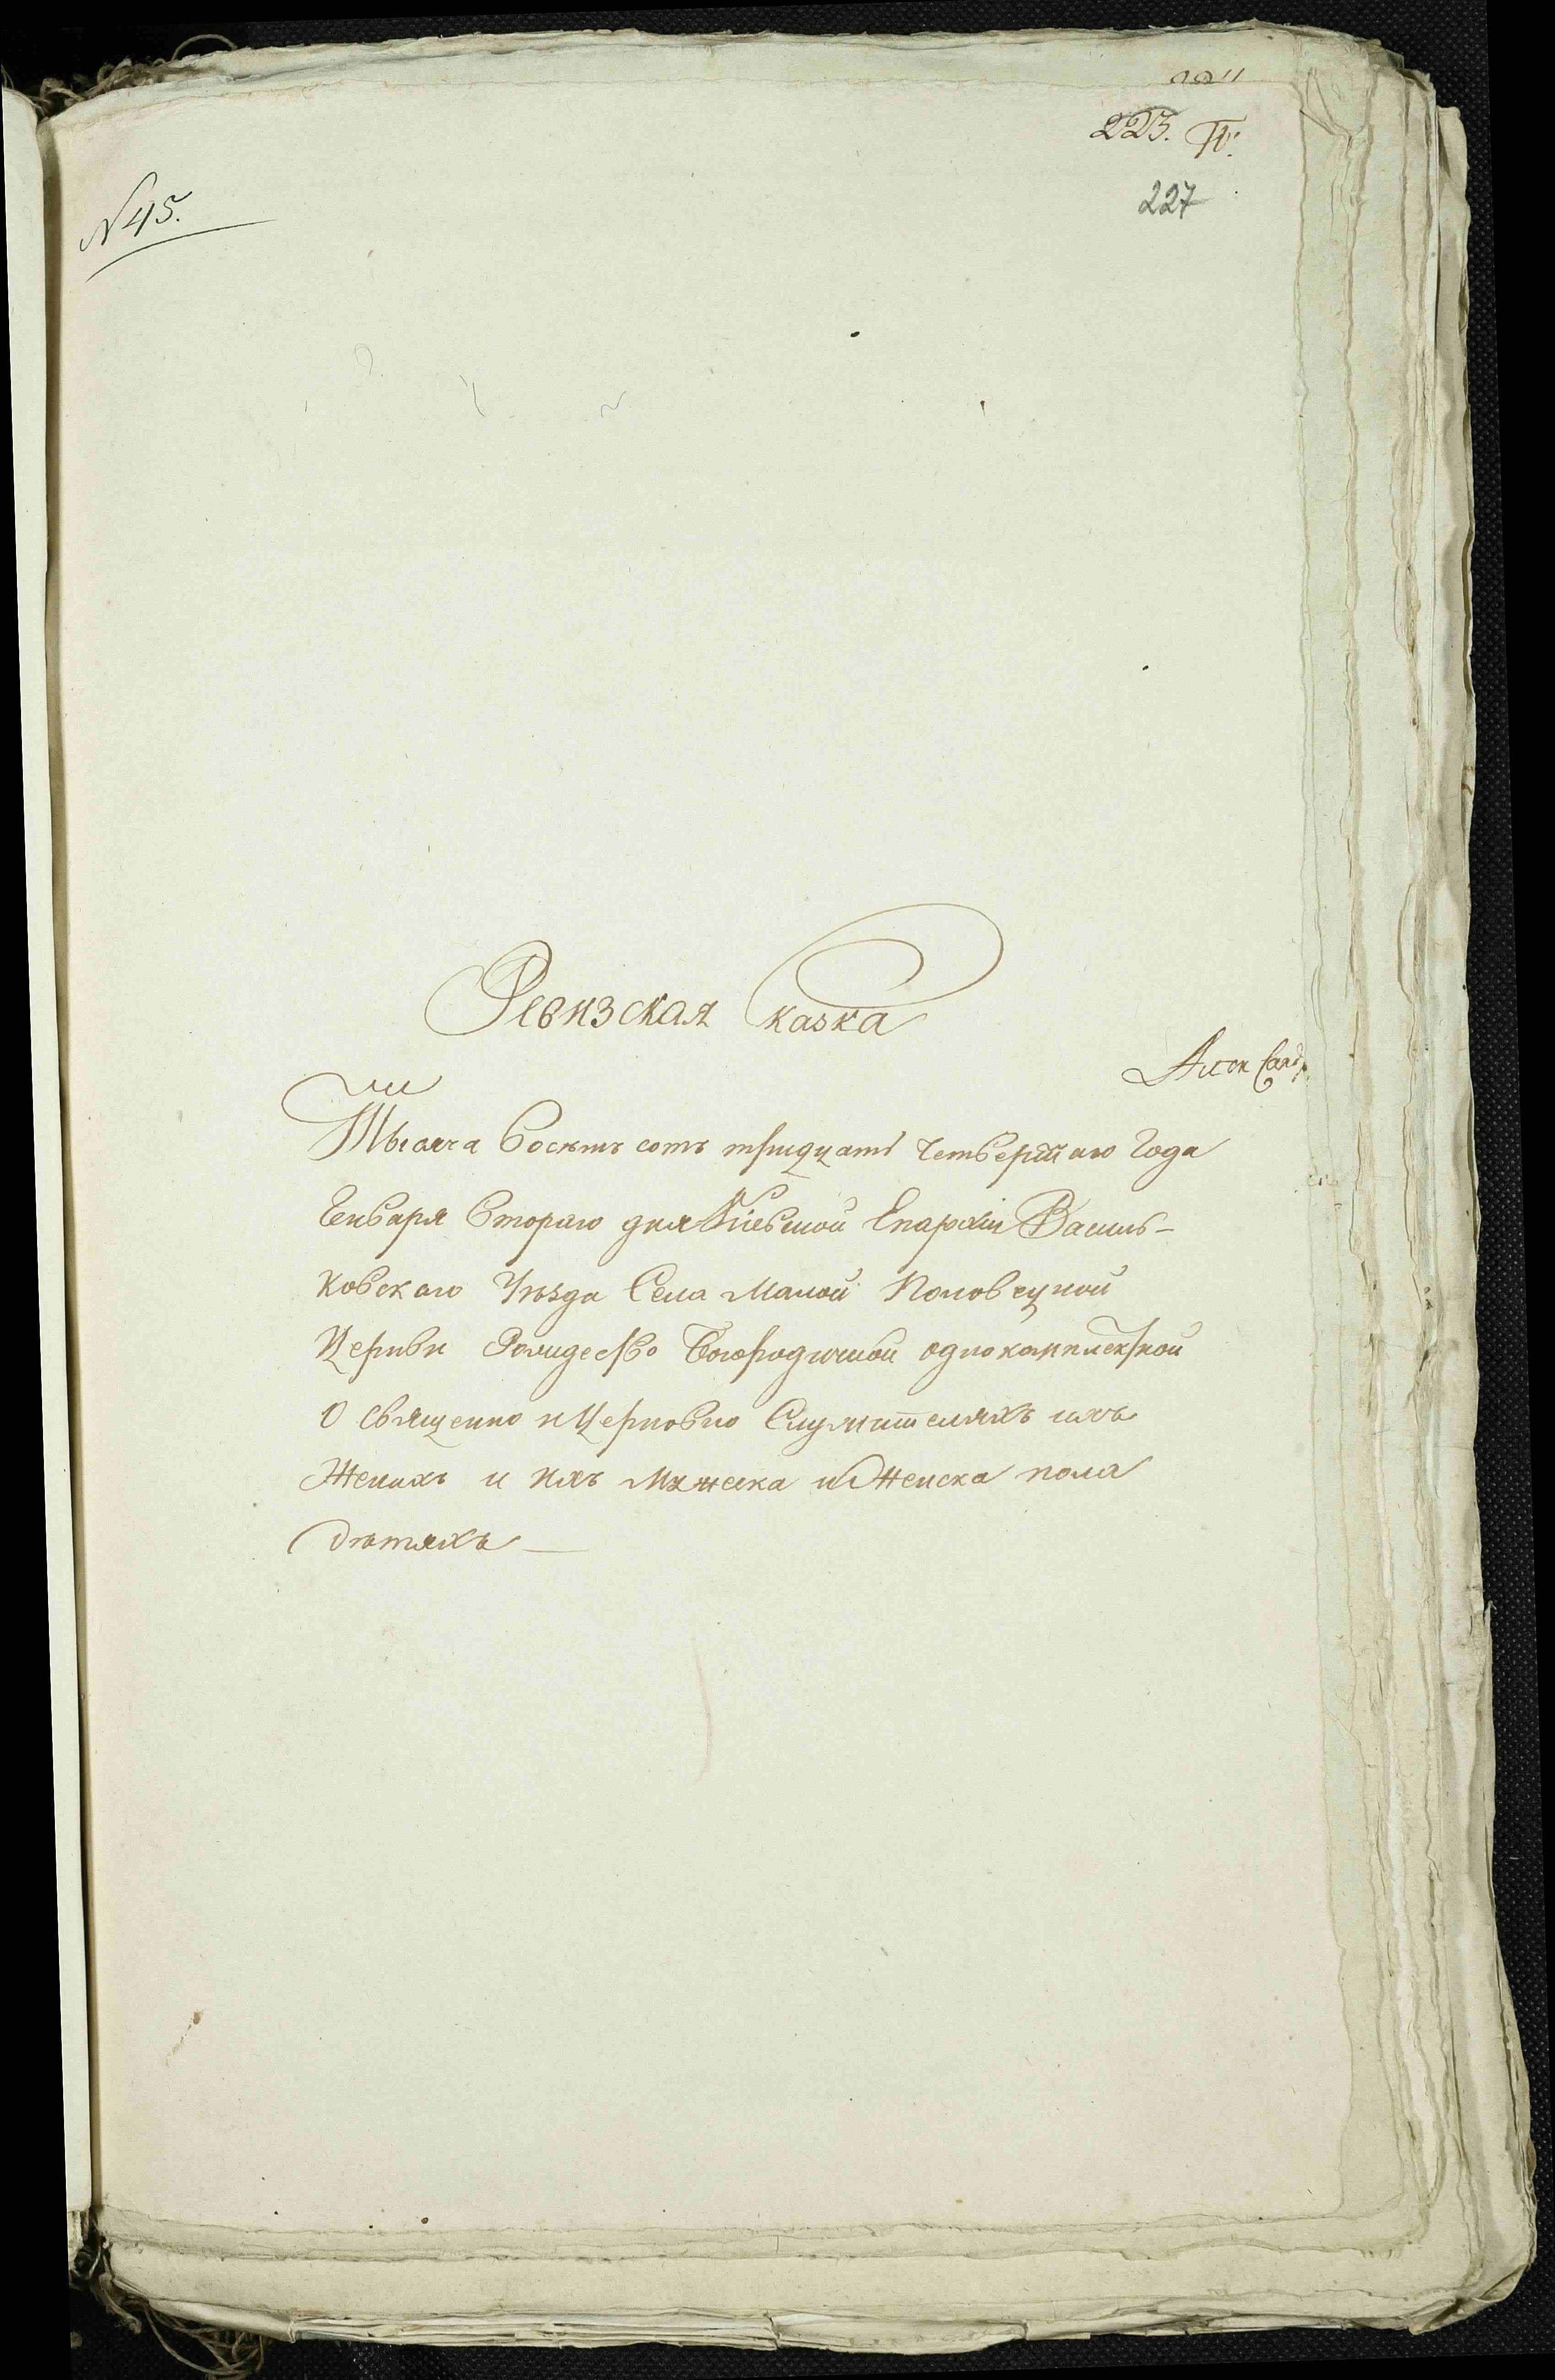 223.
227
N 45.
Ревизская Сказка
Тысяча восемь сотъ тридцать четвертаго года
Генваря втораго дня Кіевской Епархіи Василь-
ковскаго Уѣзда Села Малой Половецкой
Церкви Рождество Богородичной однокомплектной
О священно и Церковно Служителяхъ ихъ
Женахъ и ихъ Мужеска и Женска пола
дѣтяхъ —